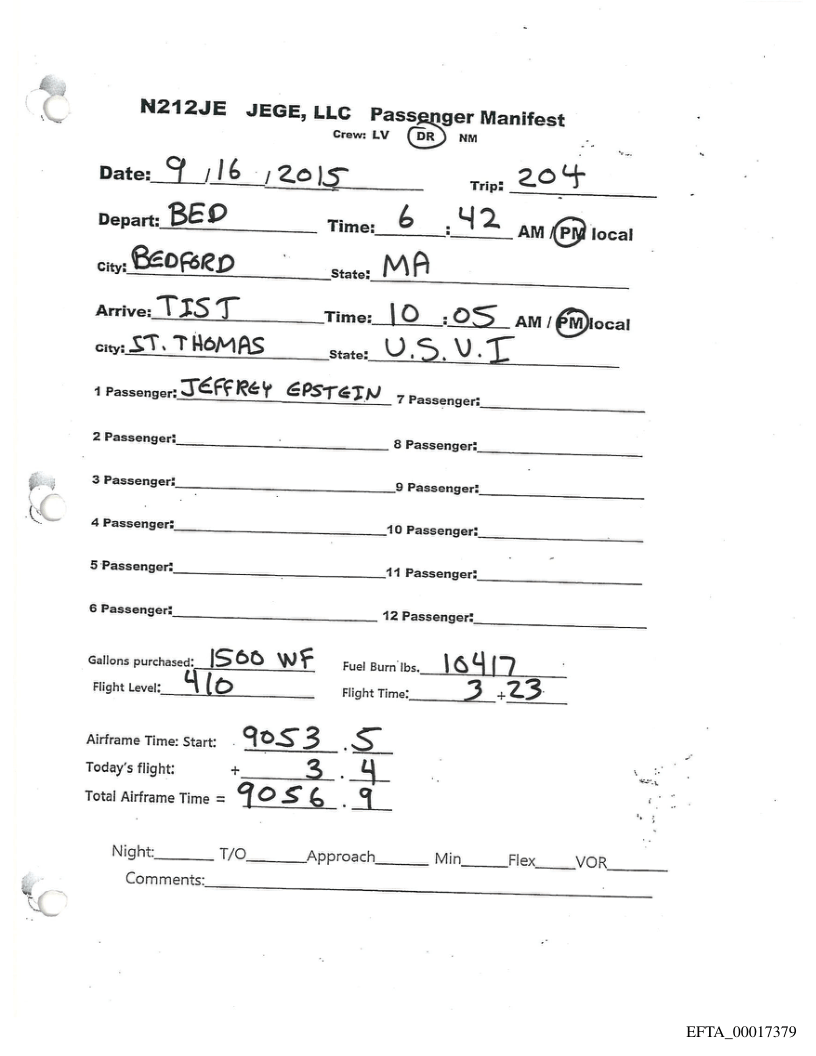 N212JE JEGE, LLC Passenger Manifest
Crew: LV DR NM
Date: 9 / 16 / 2015 Trip: 204
Depart: BED Time: 6 : 42 AM / PM local
City: BEDFORD State: MA
Arrive: TIST Time: 10 : 05 AM / PM local
City: ST. THOMAS State: U.S.V.I
1 Passenger: JEFFREY EPSTEIN 7 Passenger:
2 Passenger: 8 Passenger:
3 Passenger: 9 Passenger:
4 Passenger: 10 Passenger:
5 Passenger: 11 Passenger:
6 Passenger: 12 Passenger:
Gallons purchased: 1500 WF Fuel Burn lbs. 10417
Flight Level: 410 Flight Time: 3 + 23
Airframe Time: Start: 9053 . 5
Today's flight: + 3 . 4
Total Airframe Time = 9056 . 9
Night: T/O Approach Min Flex VOR
Comments:
EFTA_00017379